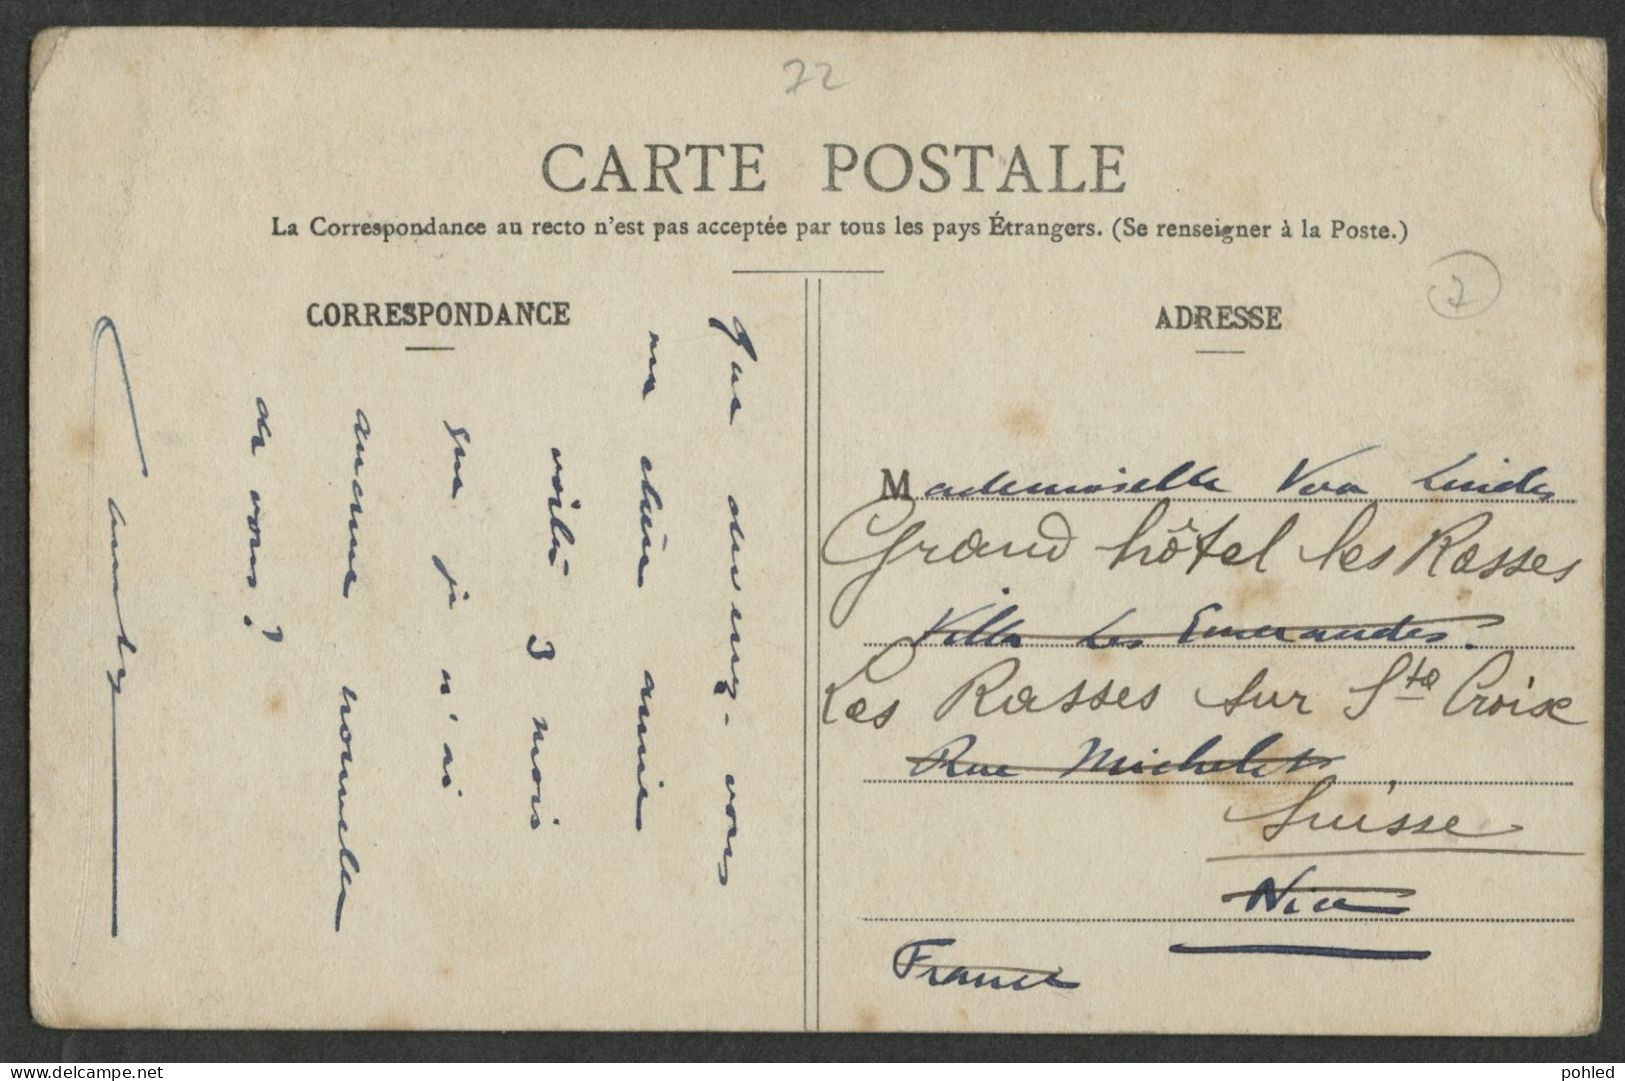 72
CARTE POSTALE
La Correspondance au recto n'est pas acceptée par tous les pays Étrangers. (Se renseigner à la Poste.)
CORRESPONDANCE
Que devenez-vous
ma chère amie
voilà 3 mois
que je n'ai
aucune nouvelle
de vous?
ADRESSE
7
Mademoiselle Vera
Grand hôtel les Rasses
Villa Les Emeraudes.
Les Rasses sur Ste Croix
Rue Michelet
Suisse
Nice
France
www.delcampe.net
pohled